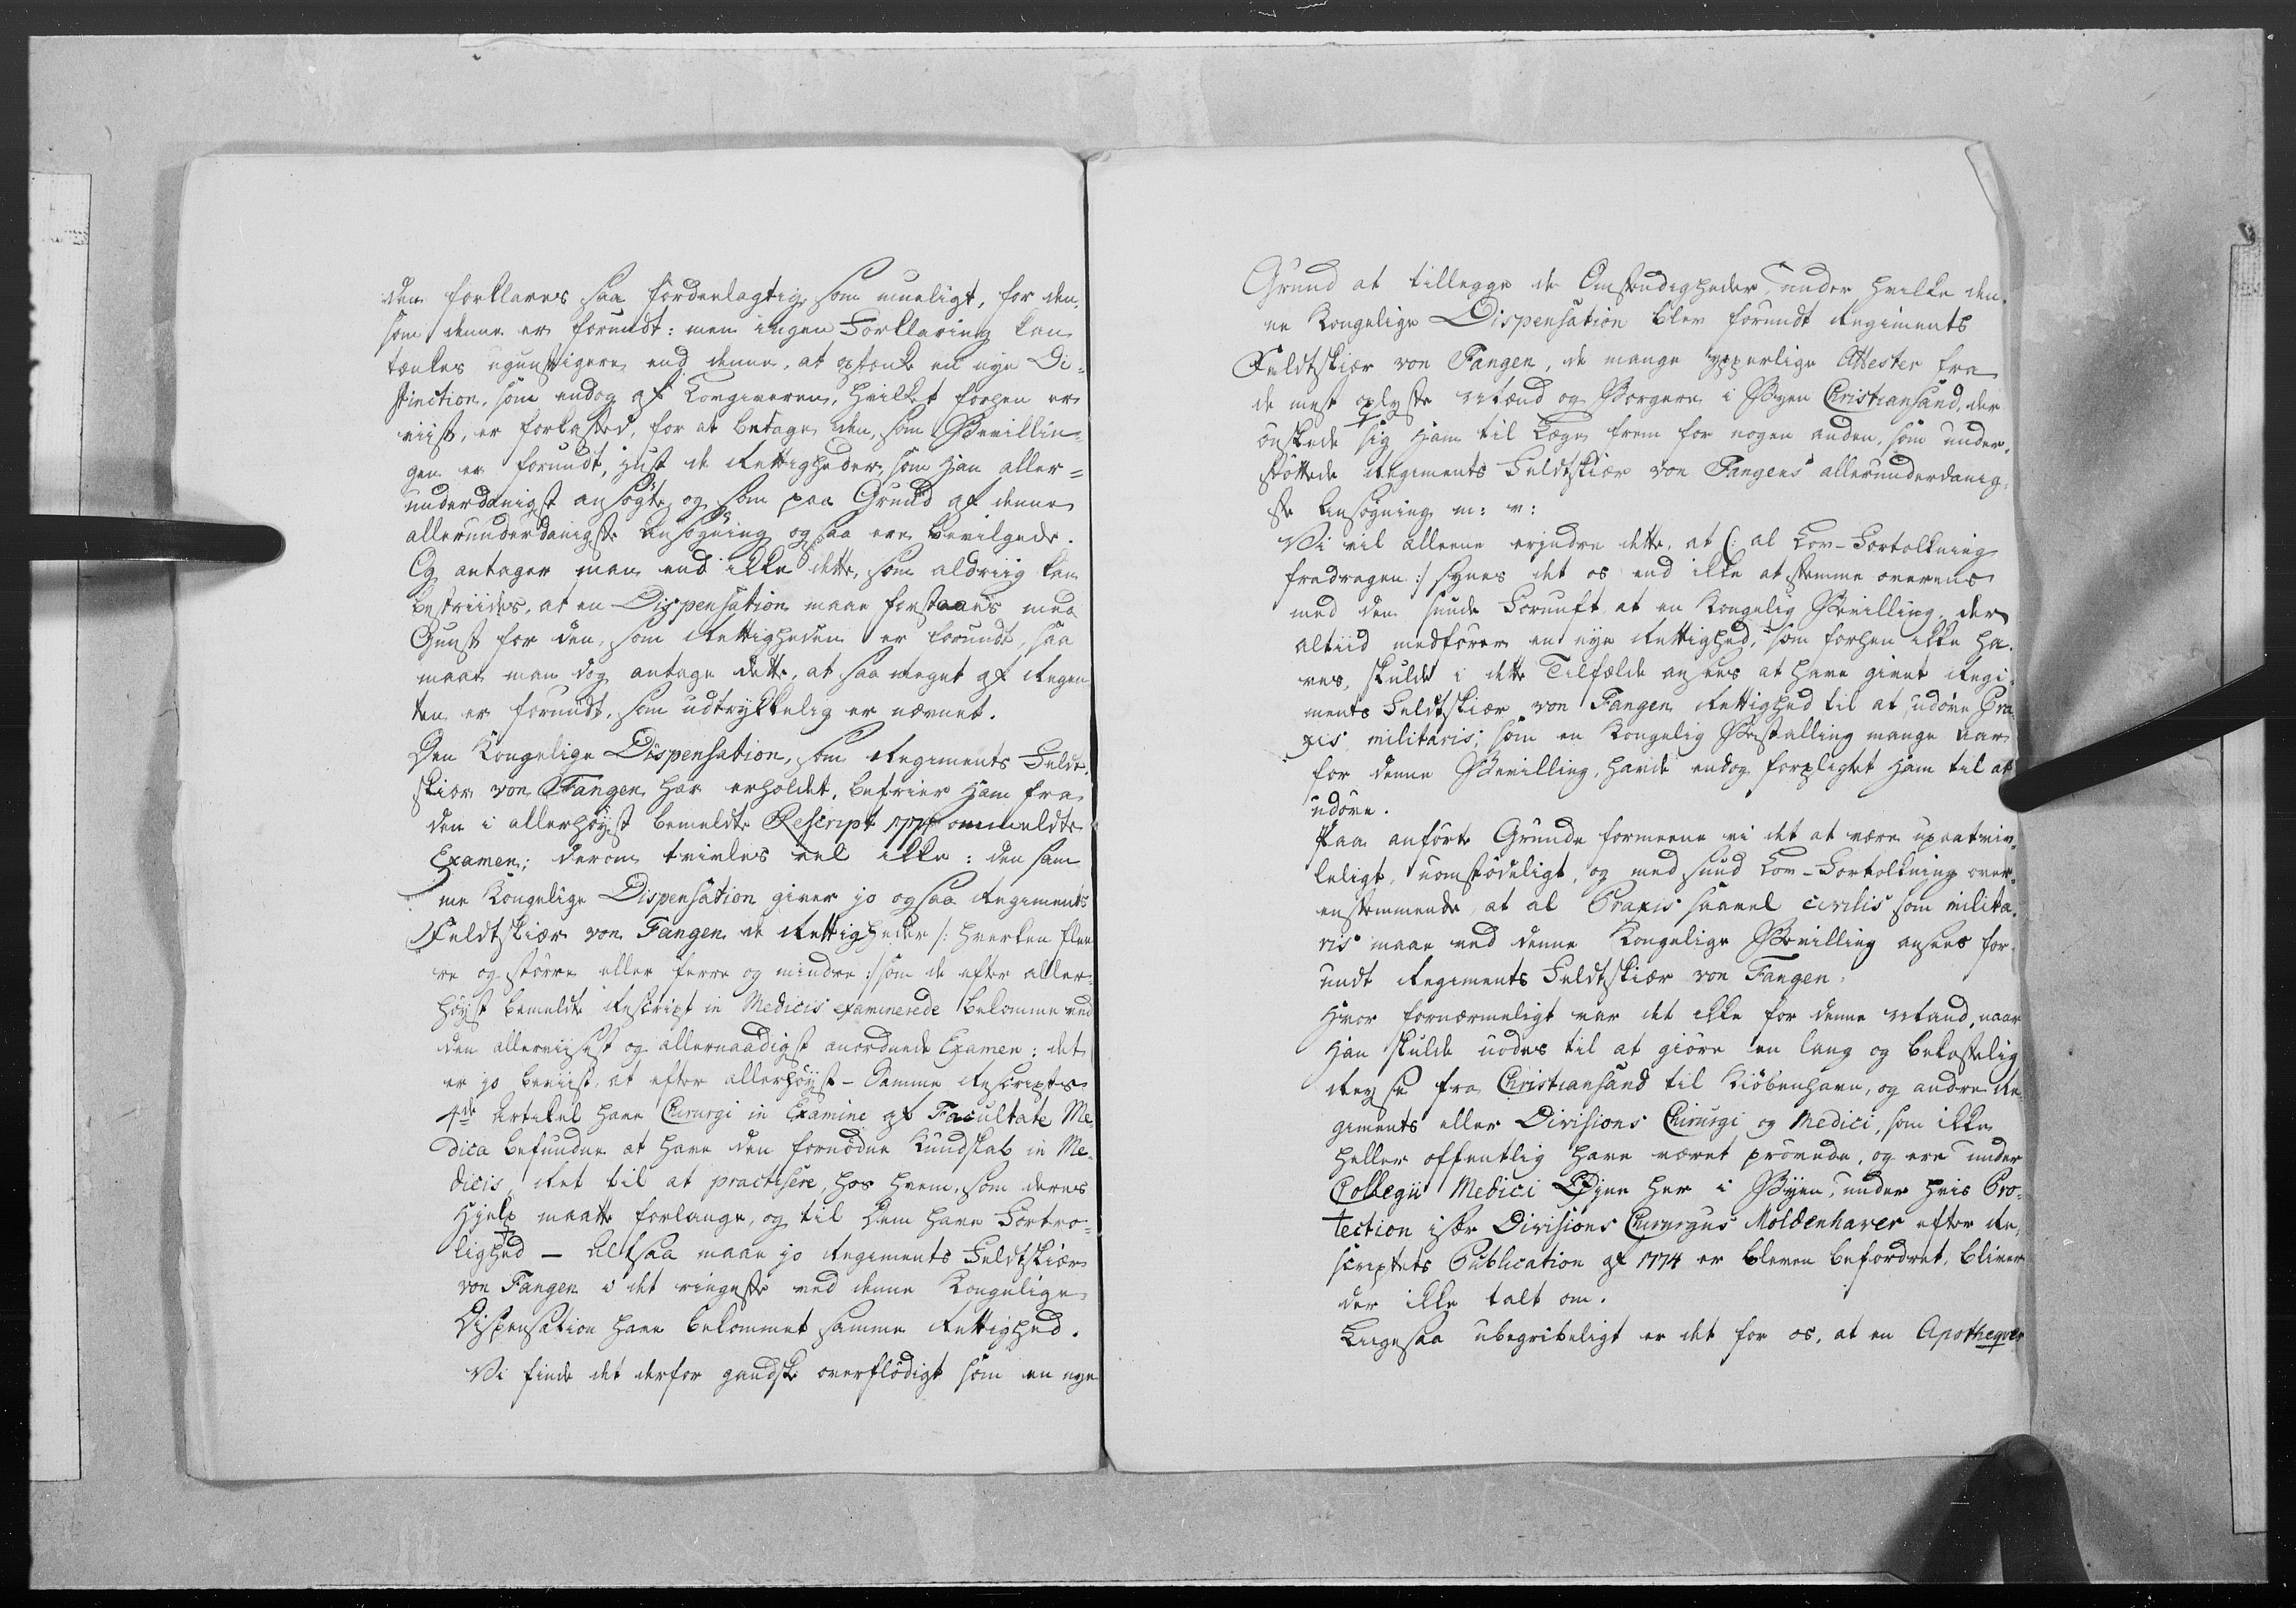 den forklares saa fordeelagtig som mueligt, for den,
som denne er forundt: men ingen Forklaring kan
tænkes ugunstigere end denne, at optænke en nye Di-
stinction, som endog af Lovgiveren, hvilket forhen er
viist, er forkasted, for at betage den, som Bevillin-
gen er forundt, just de Rettigheder, som han aller-
underdanigst ansøgte og som paa Grund af denne
allerunderdanigste Ansøgning ogsaa ere bevilgede.
Og antager man end ikke dette, som aldriig kan
bestriides, at en Dispensation maae forstaaes med
Gunst for den, som Rettigheden er forundt, saa
maae man dog antage dette, at saa meget af Regen-
ten er forundt, som udtrykkelig er nævnet.
Den Kongelige Dispensation, som Regiments Feldt-
skiær von Fangen har erholdet, befrier ham fra
den i allerhøyst bemeldte Rescript 1774 ommeldte
Examen; derom tvivles vel ikke: den sam-
me Kongelige Dispensation giver jo ogsaa Regiments
Feldtskiær von Fangen de Rettigheder /: hverken flee-
re og større eller færre og mindre :/ som de efter aller-
høyst bemeldte Rescript in Medicis examinerede bekomme ved
den allerviisest og allernaadigst anordnede Examen: det
er jo beviist, at efter allerhøyst-samme Rescriptes
4de Artikel have Chirurgi in Examine af Facultate Me-
dica befundne at have den fornødne Kundskab in Me-
dicis, Ret til at practisere, hos hvem, som deres
Hjelp maatte forlange, og til dem have Fortro-
lighed — Altsaa maae jo Regiments Feldtskiær
von Fangen i det ringeste ved denne Kongelige
Dispensation have bekommet samme Rettighed.
Vi finde det derfor gandske overflødigt som en nye
Grund at tillegge de Omstændigheder, under hvilke den-
ne Kongelige Dispensation blev forundt Regiments
Feldtskiær von Fangen, de mange ypperlige Attester fra
de mest oplyste Mænd og Borgere i Byen Christiansand, der
ønskede sig ham til Læge frem for nogen anden, som under-
støttede Regiments Feldtskiær von Fangens allerunderdanig-
ste Ansøgning m: v:
Vi vil alleene erindre dette, at (: al Lov-Fortolkning
fradragen :/ synes det os end ikke at stemme overeens
med den sunde Fornuft at en Kongelig Bevilling, der
altiid medfører en nye Rettighed, som forhen ikke ha-
ves, skulde i dette Tilfælde ansees at have givet Regi-
ments Feldtskiær von Fangen Rettighed til at udøve Pra-
xis militaris, som en Kongelig Bestalling mange Aar
før denne Bevilling, havde endog forpligtet ham til at
udøve.
Paa anførte Grunde formeene vi det at være upaatviv-
leligt, uomstødeligt, og med sund Lov-Fortolkning over-
ensstemmende, at al Praxis saavel civilis som milita-
ris maae ved denne Kongelige Bevilling ansees for-
undt Regiments Feldtskiær von Fangen.
Hvor fornærmeligt var det ikke for denne Mand, naar
han skulde nødes til at giøre en lang og bekostelig
Reyse fra Christiansand til Kiøbenhavn, og andre Re-
giments eller Divisions Chirurgi og Medici, som ikke
heller offentlig have været prøvede, og ere under
Collegii Medici Øjne her i Byen, under hvis Pro-
tection især Divisions Chirurgus Moldenhawer efter Re-
scriptets Publication af 1774 er bleven befordret, bliver
der ikke talt om.
Ligesaa ubegribeligt er det for os, at en Apotheqver